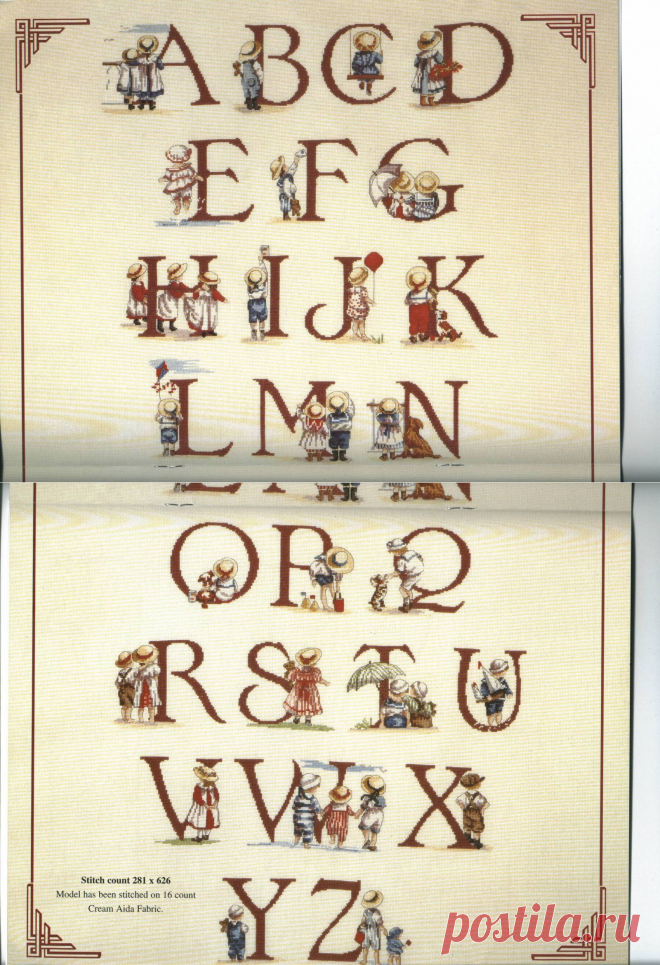 A B C D
E F G
H I J K
L M N
L M N
O P Q
R S T U
V W X
Stitch count 281 x 626
Model has been stitched on 16 count
Cream Aida Fabric.
Y Z
postila.ru